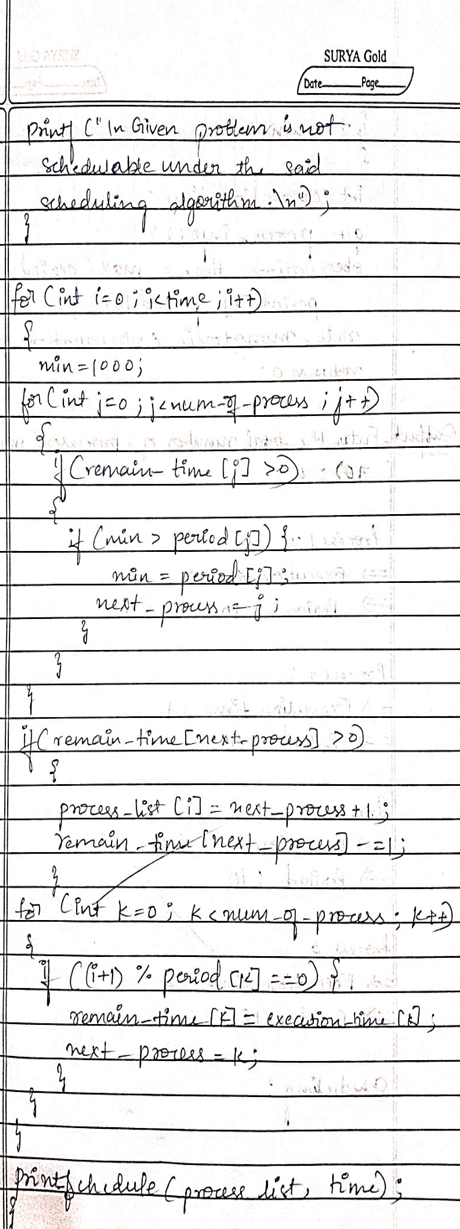 SURYA Gold
Date Page
printf ("\n Given problem is not
schedulable under the said
scheduling algorithm.\n");
}
for (int i=0; i<time; i++)
{
min=1000;
for (int j=0; j<num-of-process; j++)
{
if (remain-time [j] >0)
{
if (min > period [j]) {
min = period [j];
next_process = j;
}
}
}
if (remain-time [next-process] >0)
{
process_list [i] = next_process+1;
remain_time [next_process] -=1;
}
for (int k=0; k<num-of-process; k++)
{
if ((i+1) % period [k] ==0) {
remain-time [k] = execusion-time [k];
next_process = k;
}
}
}
printschedule (process list, time);
}